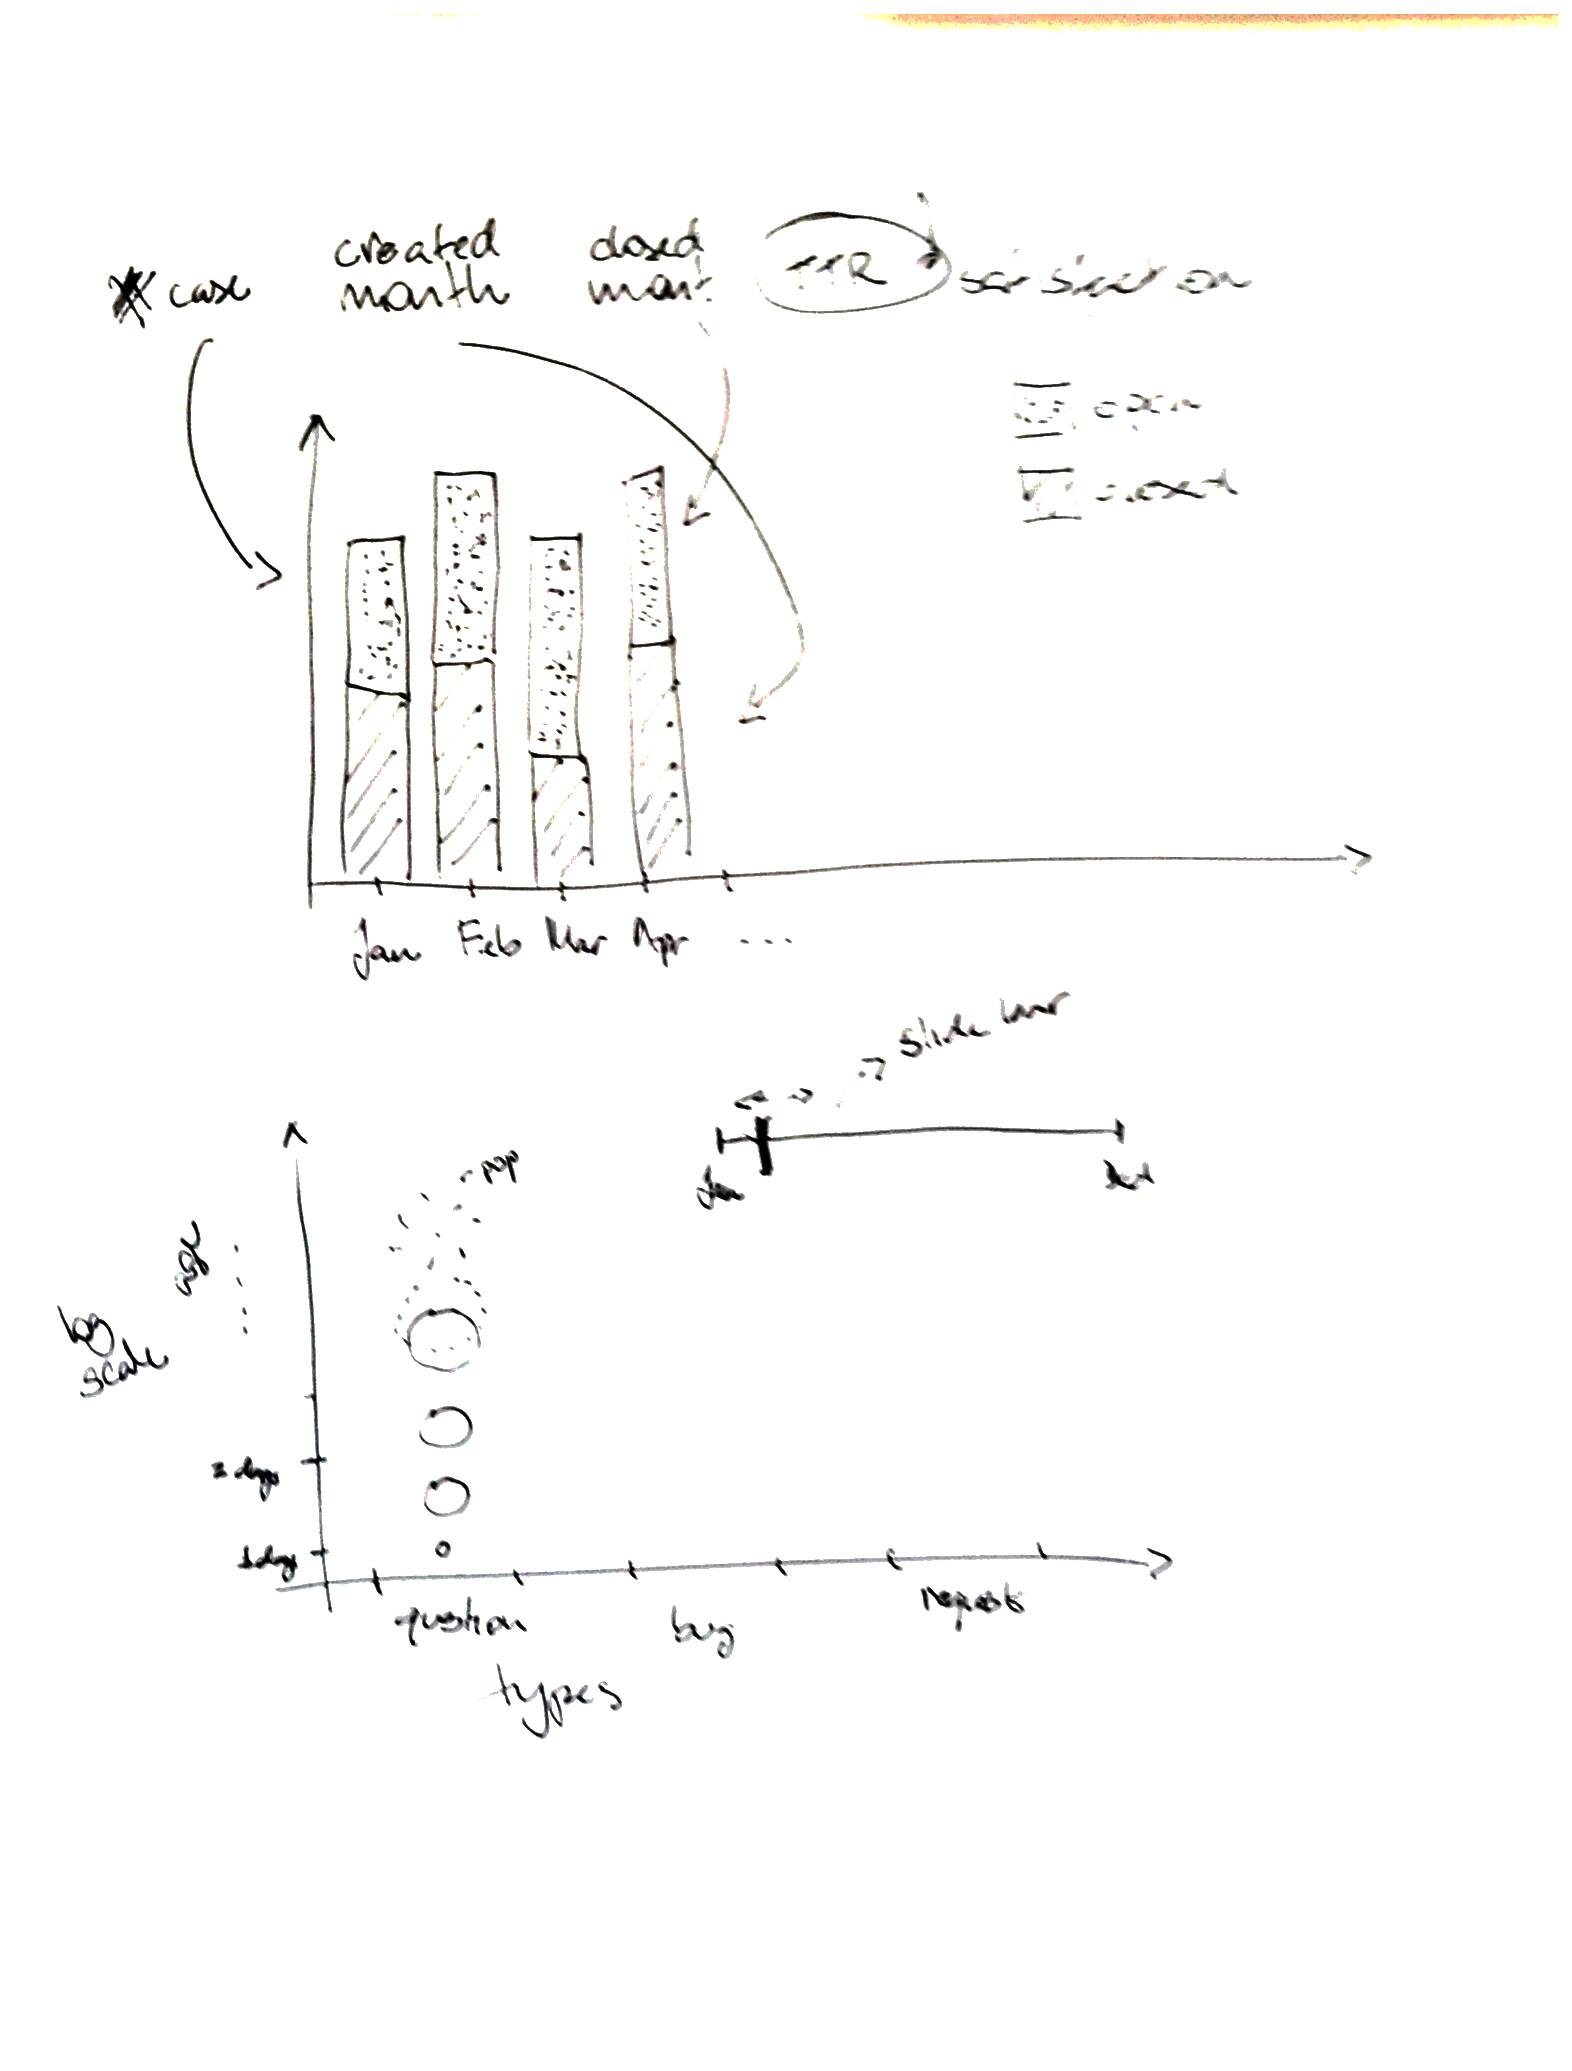 case
created
month
closed
TTR
satisfaction
open
closed
Jan Feb Mar Apr ....
slide bar
Jan
pop
log
scale
2 days
1 day
question bug request
types